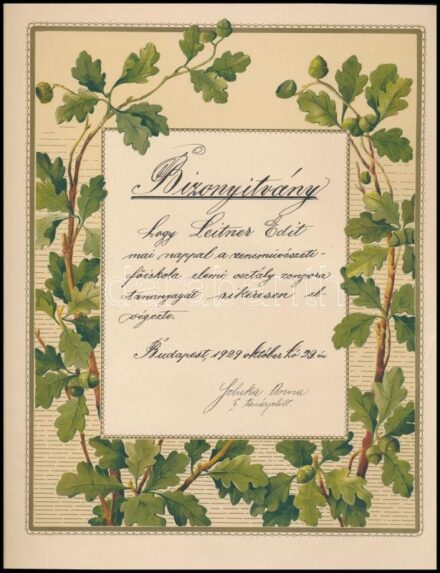 Bizonyitvány
hogy Leitner Edit
mai nappal a zeneművészeti-
főiskola elemi osztály zongora
tananyagát sikeresen el
végezte.
Budapest, 1929 október hó 23 án
Anna